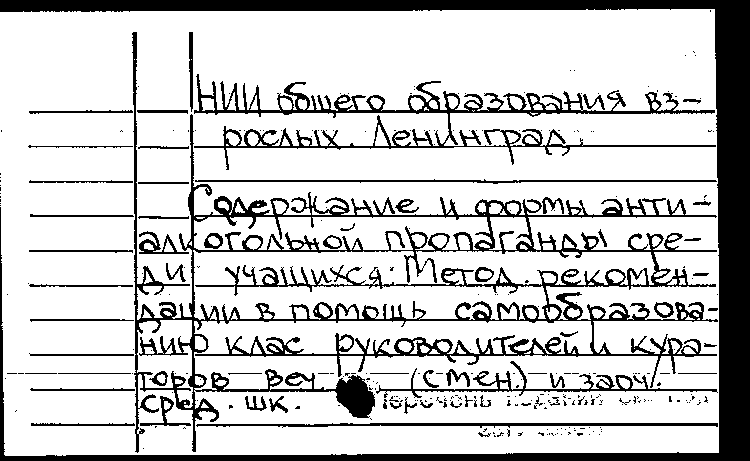 НИИ общего образования вз-
рослых. Ленинград.
Содержание и формы анти-
алкогольной пропаганды сре-
ди учащихся: Метод. рекомен-
дации в помощь самообразова-
нию клас. руководителей и кура-
торов веч. (смен.) и заоч.
сред. шк. Перечень изданий см. на